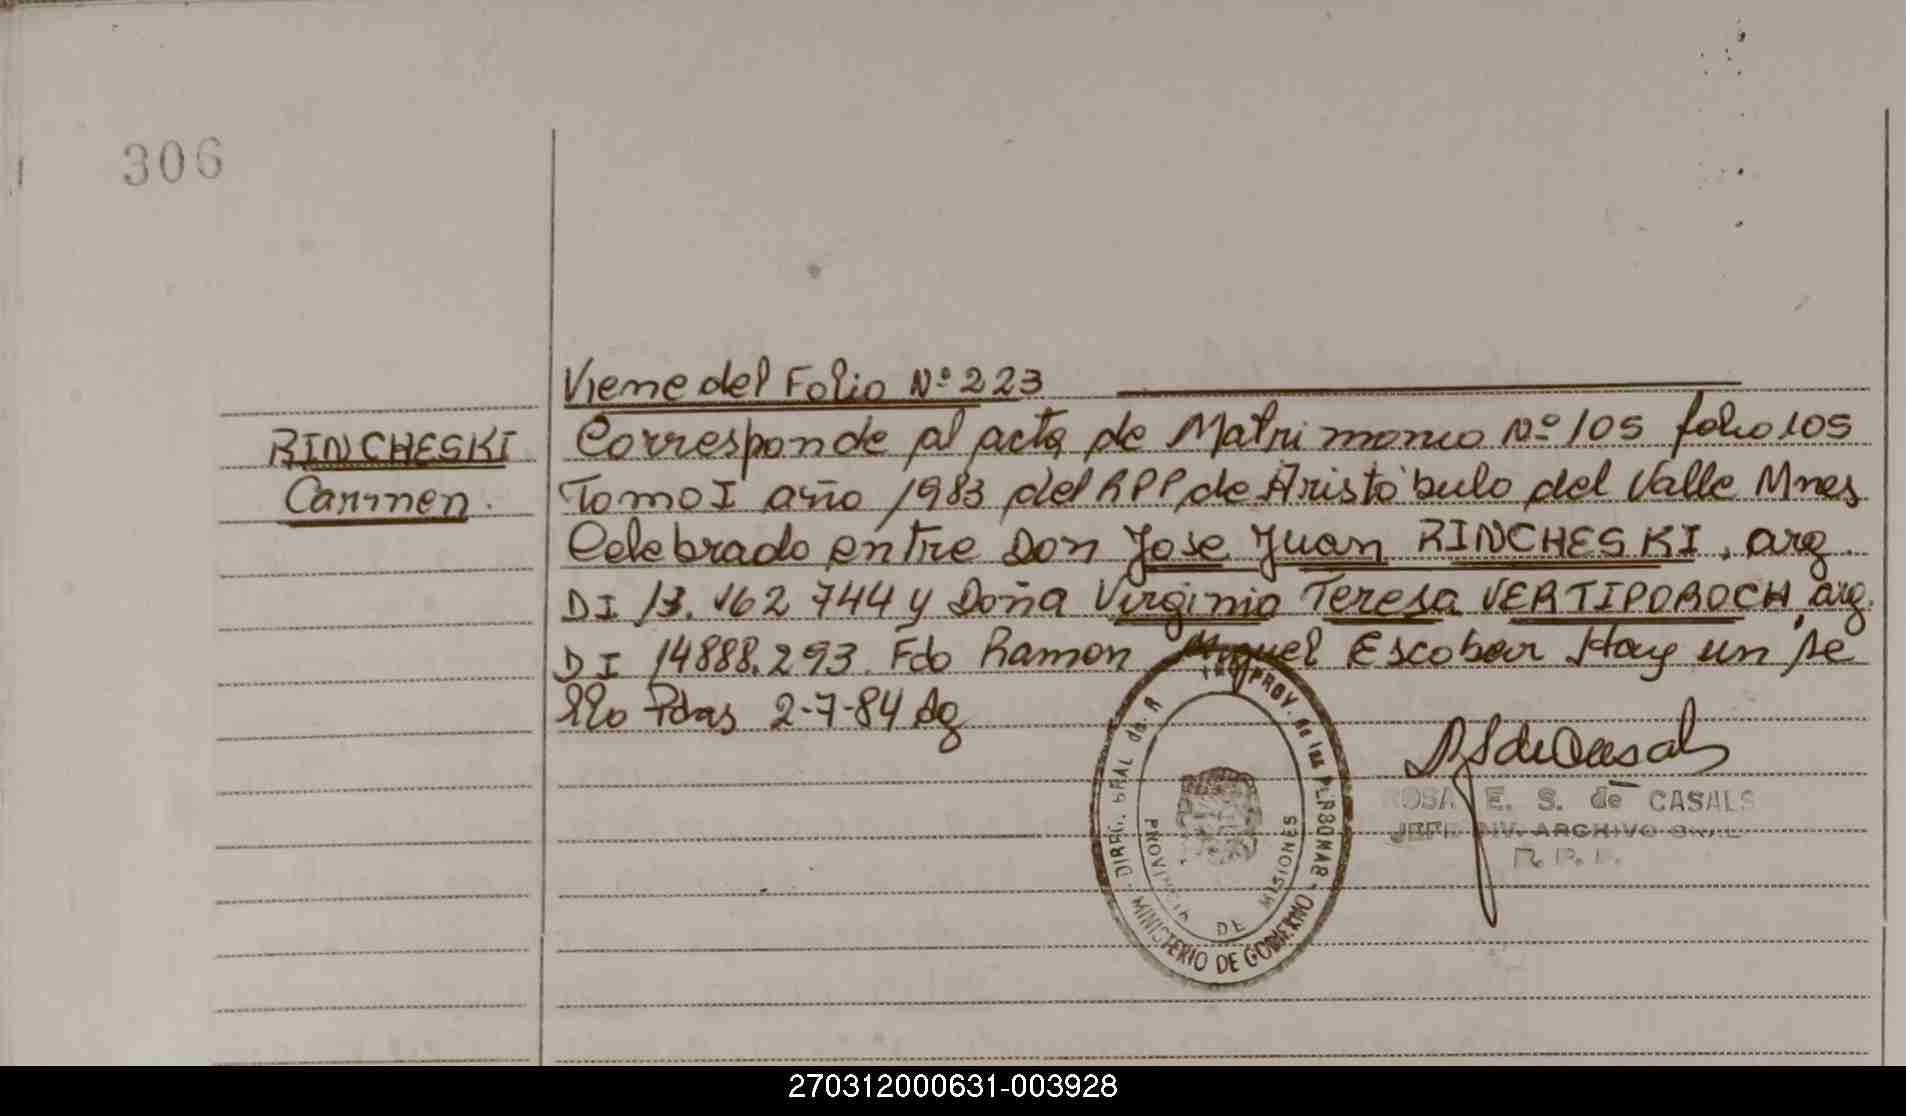 306
Viene del Folio Nº 223
RINCHESKI
Carmen.
Corresponde al acta de Matrimonio Nº 105 folio 105
Tomo I año 1983 del RPP de Aristóbulo del Valle Mnes
Celebrado entre Don Jose Juan RINCHESKI, arg.
DI 13.162 744 y Doña Virginia Teresa VERTIPOROCH, arg.
DI 14888.293. Fdo Ramon Miguel Escobar Hay un se
llo Pdas 2-7-84
PROV. de las
MINISTERIO DE GOBIERNO
PROVINCIA DE MISIONES
ROSA E. S. de CASALS
JEFE DIV. ARCHIVO GRAL
R. P. P.
270312000631-003928